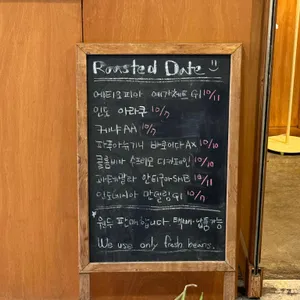 Roasted Date
에티오피아 예가체프 G1 10/11
인도 아라쿠 10/7
케냐 AA 10/7
파푸아뉴기니 바로이다 AX 10/10
콜롬비아 수프리모 디카페인 10/10
과테말라 안티구아 SHB 10/11
인도네시아 만델링 G1 10/7
* 원두 판매합니다. 택배·납품가능
We use only fresh beans.